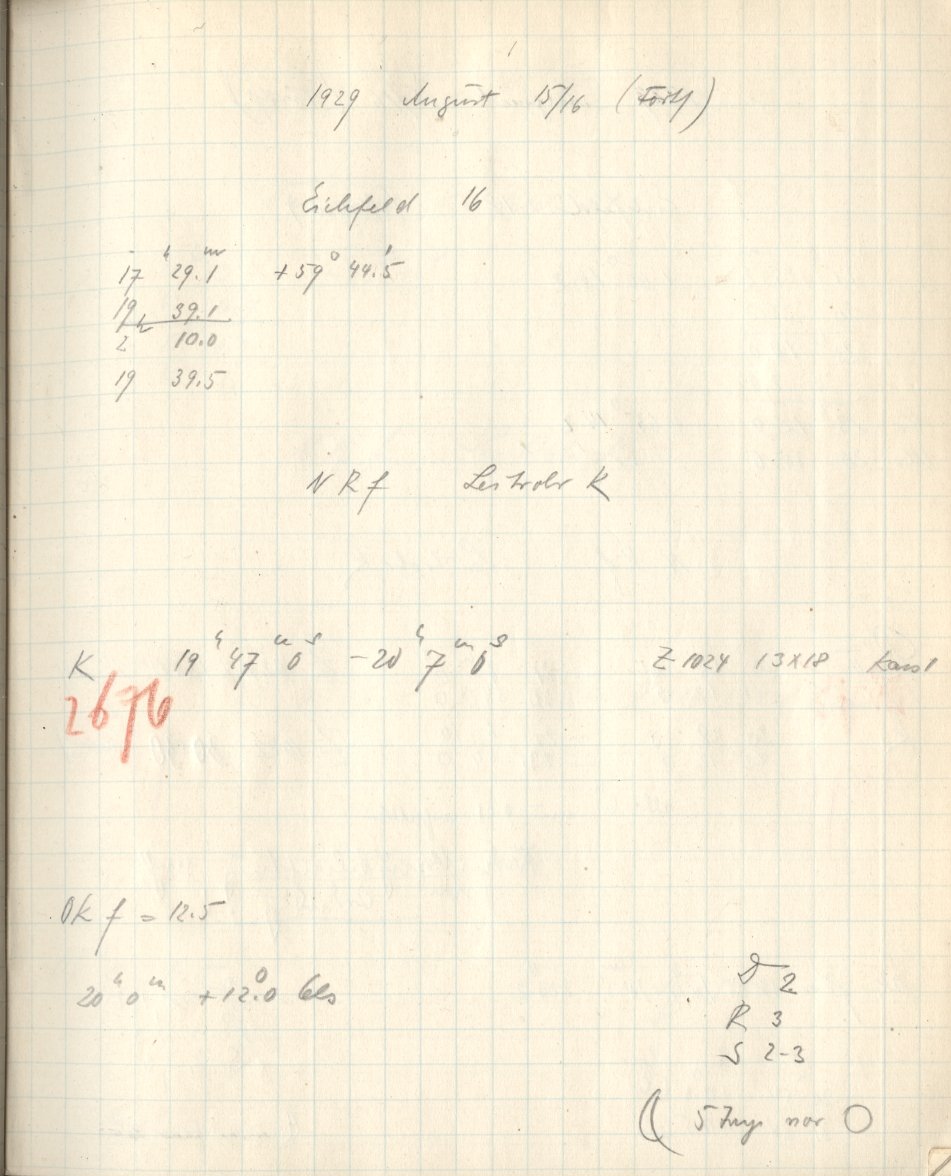 1929 August 15/16 (Forts)
Eichfeld 16
17 h 29.1 m +59° 44.5'
19 39.1
2 h 10.0
19 39.5
N R f Leitrohr K
K 19 h 47 m 0 s -20 h 7 m 0 s Z 1024 13x18
2676
OK f = 12.5
20 h 0 m +12.0°
D 2
R 3
S 2-3
( 5 Tage vor ○